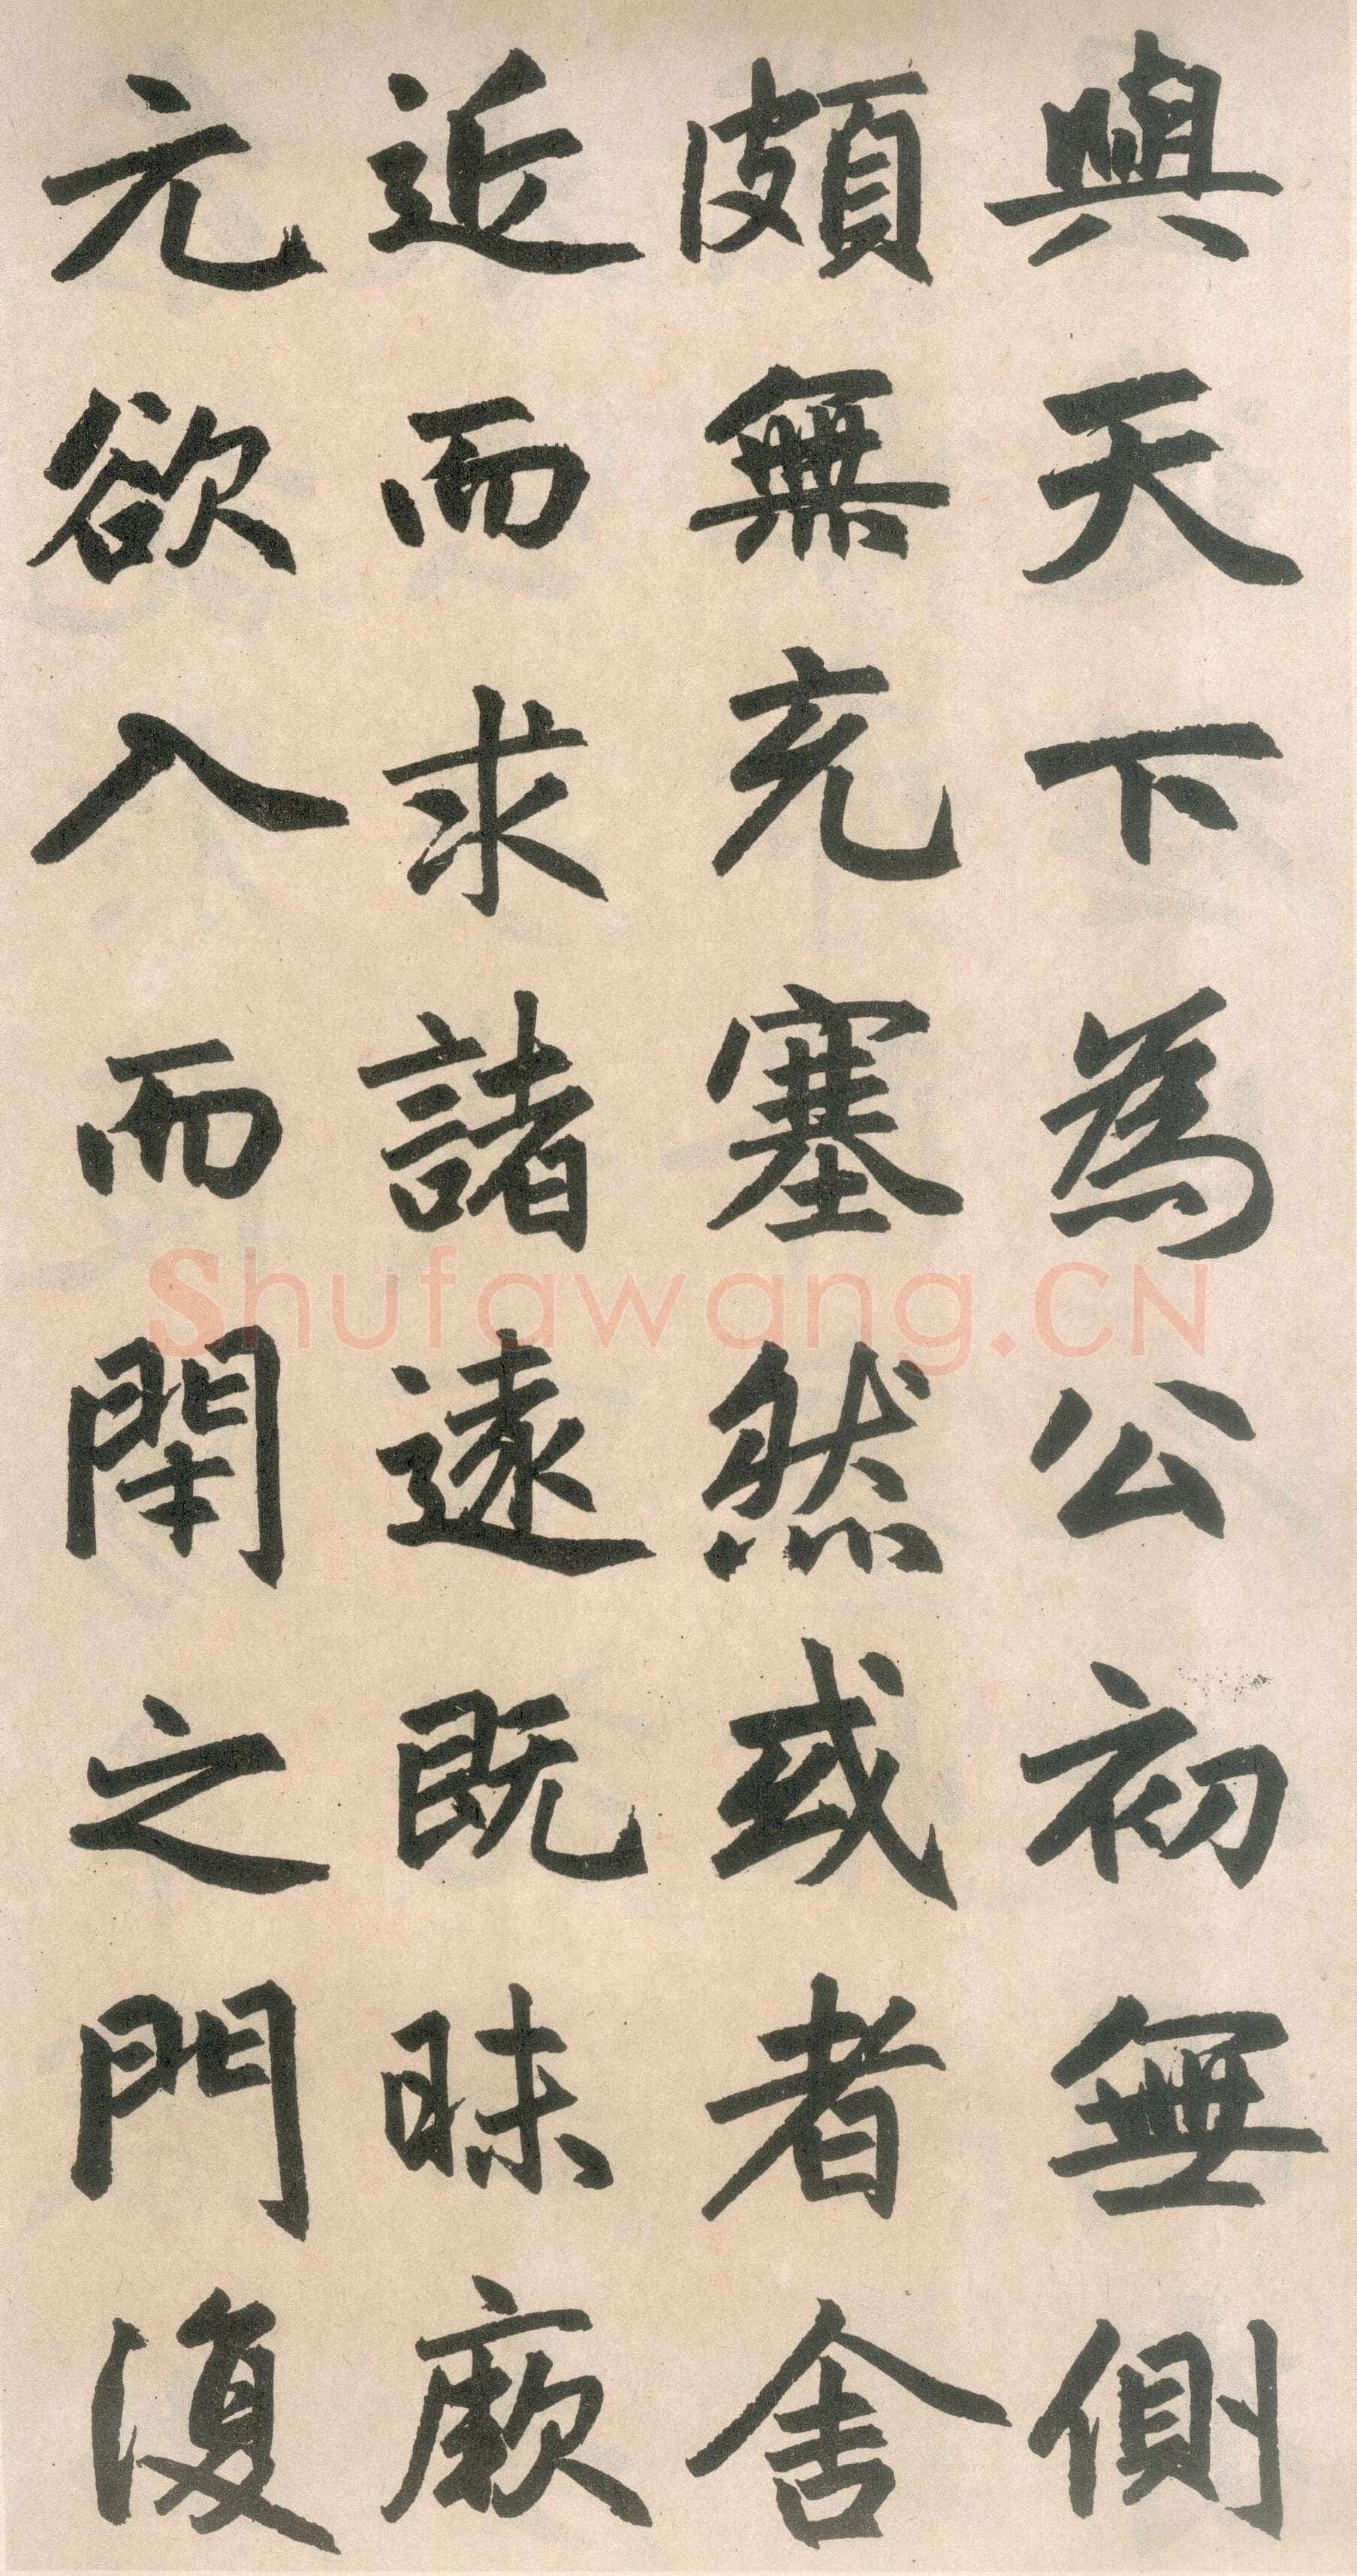 與天下為公初無側
頗無充塞然或者舍
近而求諸遠既昧厥
元欲入而閉之門復
Shufawang.CN